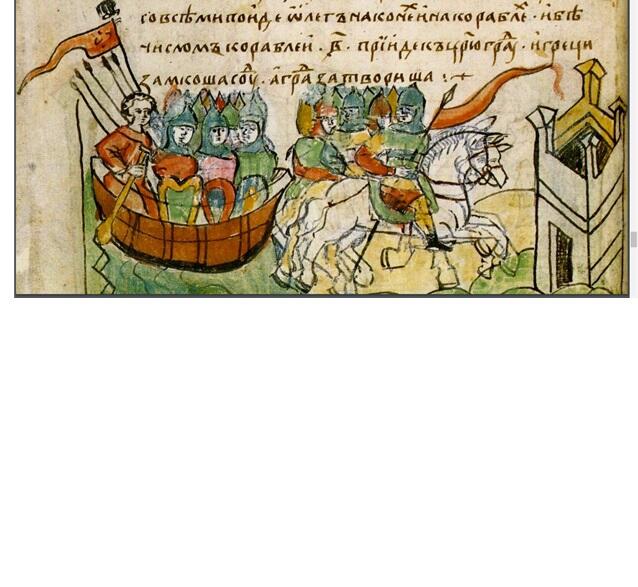 со всѣми поиде ѡлегъ на конеи и на корабле · и бѣ
числомъ кораблеи · в҃ · прїиде къ цр҃юграⷣ · и греци
замкоша соуⷣ · а граⷣ затвориша :·+